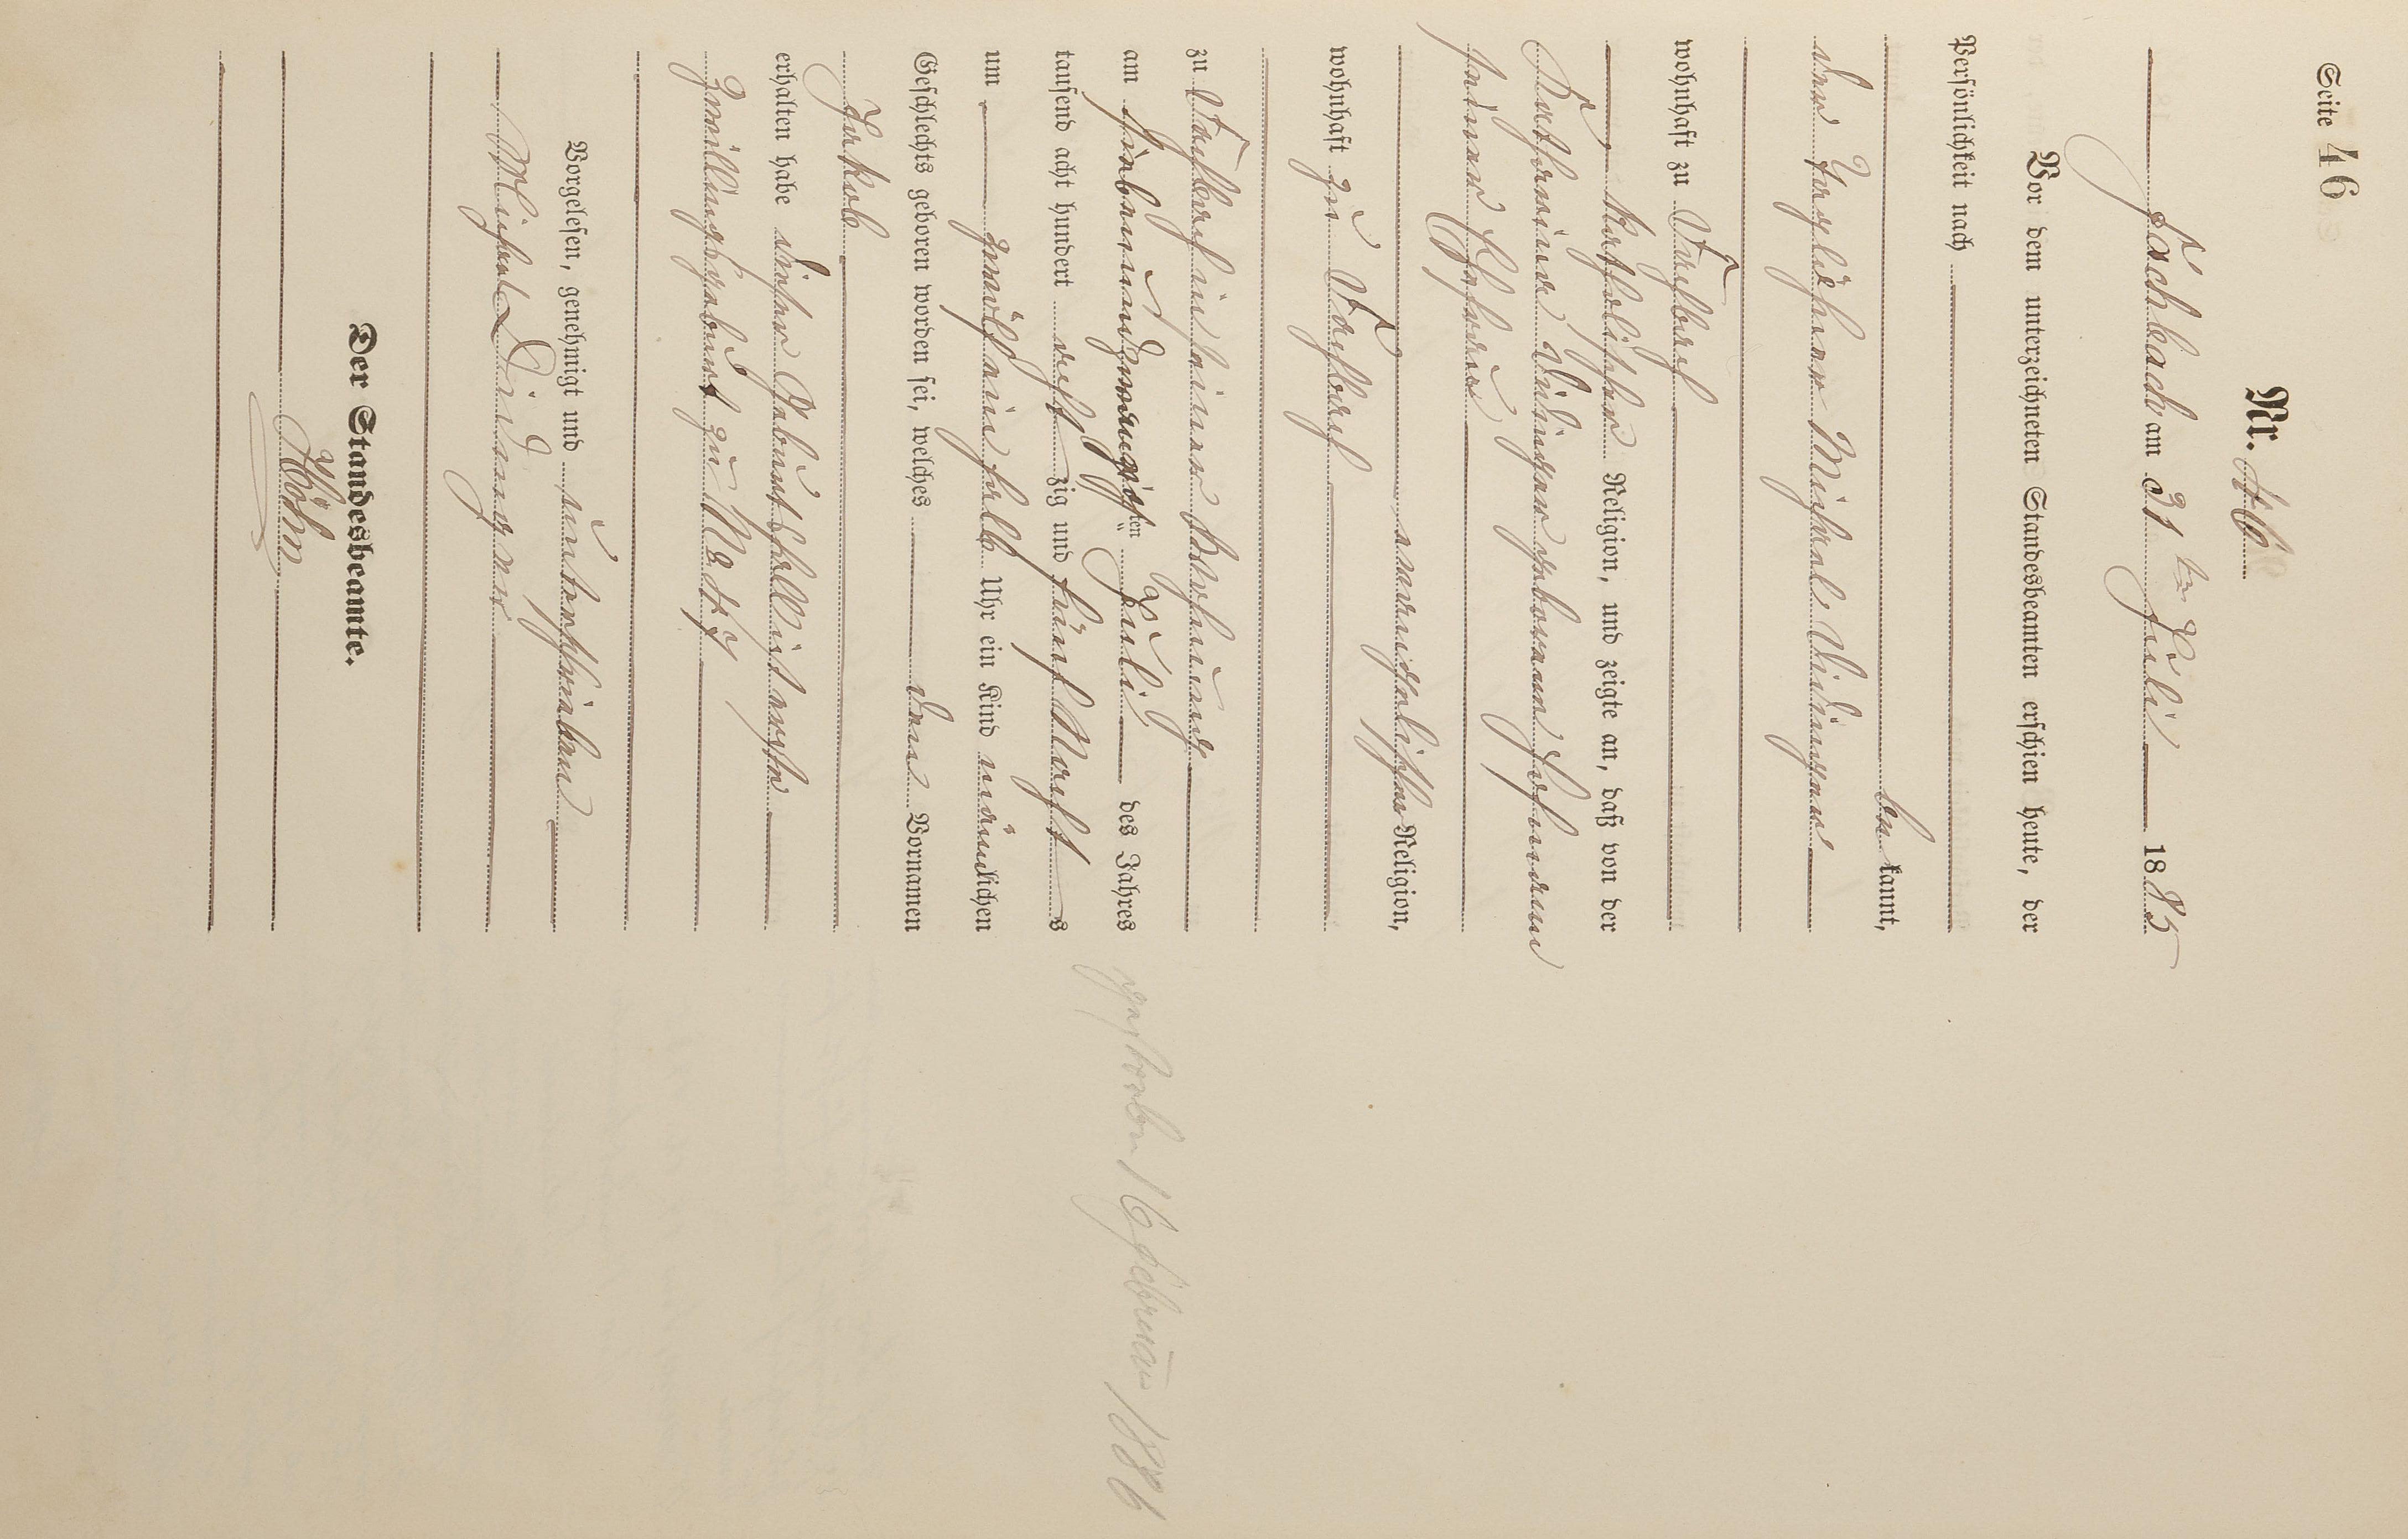 Seite 46
Nr. 46
Fachbach am 31ten Juli 1885
Vor dem unterzeichneten Standesbeamten erschien heute, der
Persönlichkeit nach
be kannt,
der Taglöhner Michael Didinger
wohnhaft zu Fachbach
katholischer Religion, und zeigte an, daß von der
Katharina Didinger geborenen Hofmann
seiner Ehefrau
evangelischer Religion,
wohnhaft zu Fachbach
zu Fachbach in seiner Wohnung
am siebenundzwanzigsten Juli des Jahres
tausend acht hundert acht zig und fünf Nachts
um zwölf ein halb Uhr ein Kind männlichen
Geschlechts geboren worden sei, welches den Vornamen
Jakob
erhalten habe dieser Geburtsfall ist erste
Zwillingsgeburt zu No 47
Vorgelesen, genehmigt und unterschrieben
Michael Didinger
Der Standesbeamte.
Höhn
gestorben 16 Februar 1886